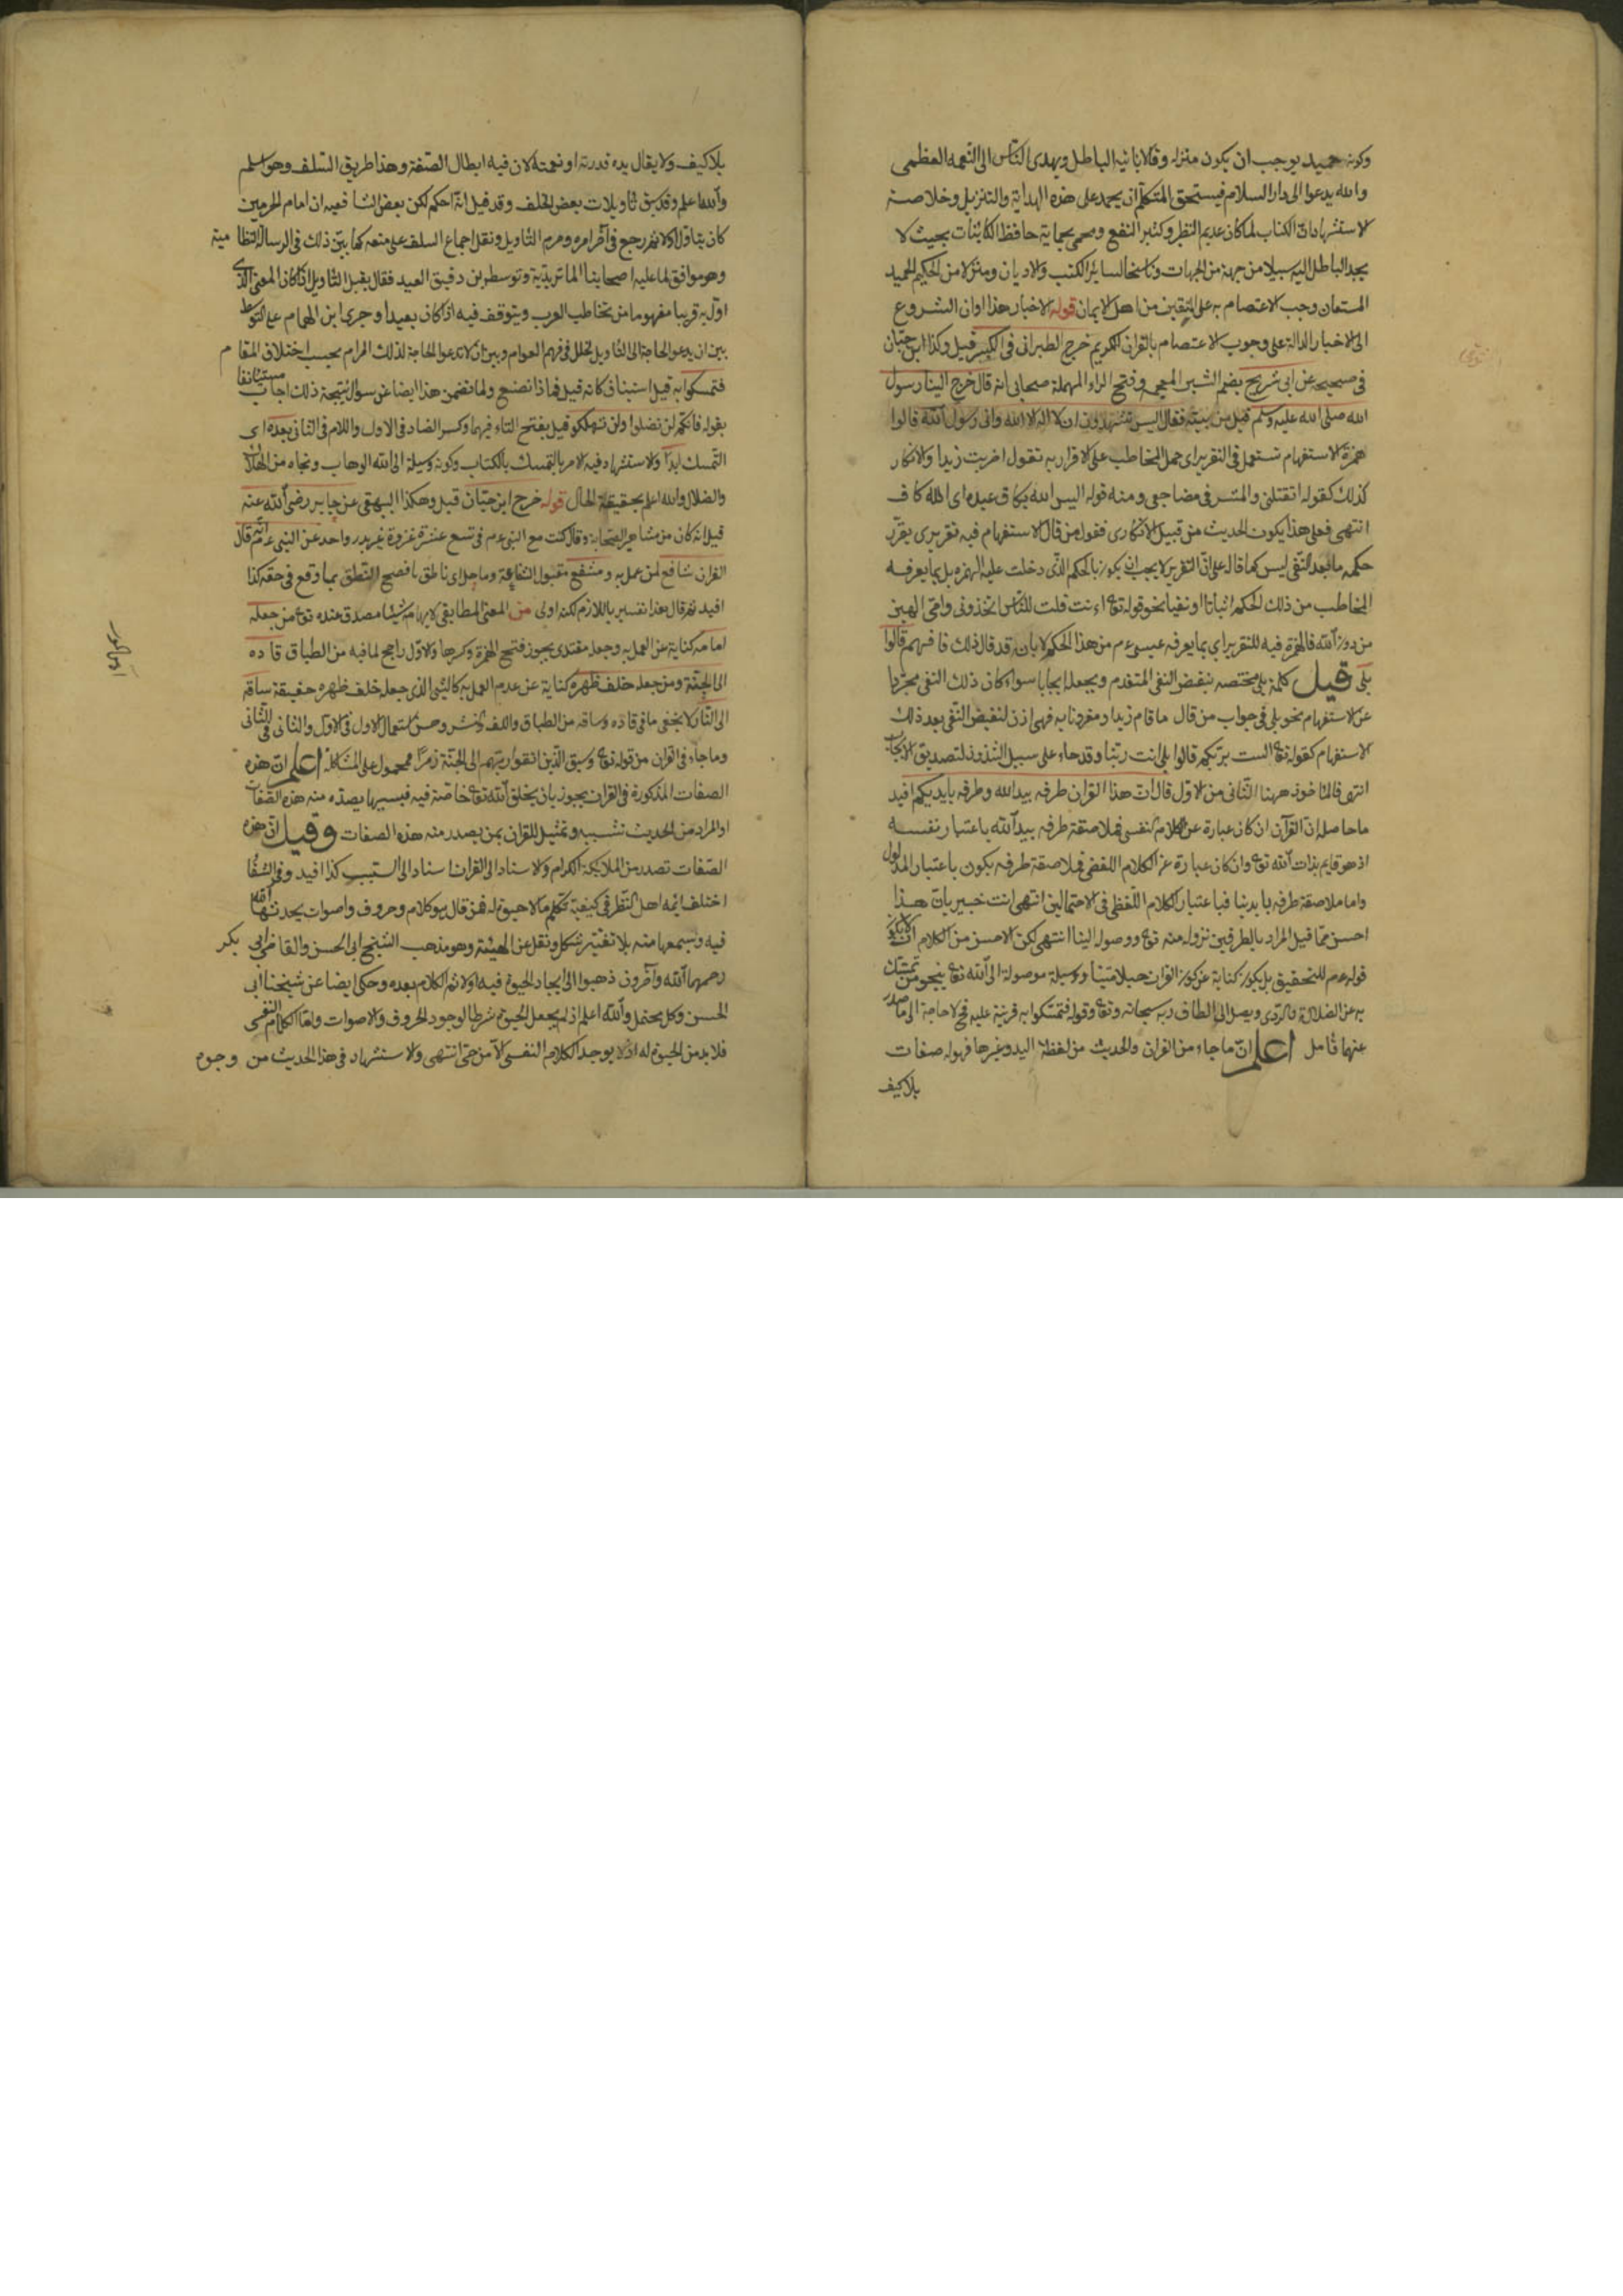 وكونه حميد يوجب ان يكون منزله وقالا يأتيه الباطل ويهدى الناس الى النعمة العظمى
والله يدعوا الى دار السلام فيستحق المتكلم ان يحمد على هذه الهداية والتنزيل وخلاصة
الاستشهاد ان الكتاب لما كان عديم النظير وكثير النفع ومحمى بحماية حافظ الكائنات بحيث لا
يجد الباطل اليه سبيلا من جهة من الجهات وناسخا لسائر الكتب والاديان ومنزلا من الحكيم الحميد
المستعان وجب الاعتصام به على الثقلين من اهل الايمان قوله الاخبار هذا اوان الشروع
الى الاخبار الدالة على وجوب الاعتصام بالقران الكريم خرج الطبرانى فى الكبير قيل وكذا ابن حبان
فى صحيحه عن ابى شريح بضم الشين المعجمة وفتح الراء المهملة صحابى انه قال خرج الينا رسول
الله صلى الله عليه وسلم قيل من بيته فقال اليس تشهدون ان لا اله الا الله وانى رسول الله قالوا
همزة الاستفهام تستعمل فى التقرير اى حمل المخاطب على الاقرار به تقول اضربت زيدا والانكار
كذلك كقوله اتقتلنى والمشرفى مضاجعى ومنه قوله اليس الله بكاف عبده اى الله كاف
انتهى فعلى هذا يكون الحديث من قبيل الانكارى فقول من قال الاستفهام فيه تقريرى يقرر
حكمه ما بعد النفى ليس كما قاله على ان التقرير لا يجب ان يكون بالحكم الذى دخلت عليه الهمزة بل بما يعرفه
المخاطب من ذلك الحكم اثباتا او نفيا نحو قوله تع اءنت قلت للناس اتخذونى وامى الهين
من دون الله فالهمزة فيه للتقرير اى بما يعرفه عيسى عم من هذا الحكم لا بان قد قال ذلك فافهم قالوا
بلى قيل كلمة بلى مختصة بنقض النفى المتقدم ويجعل ايجابا سواء كان ذلك النفى مجردا
عن الاستفهام نحو بلى فى جواب من قال ما قام زيد او مقرونا به فهى اذن لنقيض النفى بعد ذلك
الاستفهام كقوله تع الست بربكم قالوا بلى انت ربنا وقد جاء على سبيل الشذوذ لتصديق الايجاب
انتهى فالمأخوذ ههنا الثانى من الاول قال ان هذا القران طرفه بيد الله وطرفه بايديكم افيد
ما حاصله ان القرآن ان كان عبارة عن الكلام النفسى فملاصقة طرفه بيد الله باعتبار نفسه
اذ هو قايم بذات الله تع وان كان عبارة عن الكلام اللفظى فملاصقة طرفه يكون باعتبار المدلول
واما ملاصقة طرفه بايدينا فباعتبار الكلام اللفظى فى الاحتمالين انتهى انت خبير بان هذا
احسن مما قيل المراد بالطرفين نزوله منه تع ووصوله الينا انتهى لكن الاحسن من الكلام ان لا يكون
قوله عم للتحقيق بل يكون كناية عن كون القران حبلا متينا ووسيلة موصولة الى الله تع ينجو من تمسك
به عن الضلالة والردى ويصل الى الطاف ربه سبحانه وتع وقوله فتمسكوا به قرينة عليه فح لا حاجة الى ما صدر
عنهما تأمل اعلم ان ما جاء من القران والحديث من لفظة اليد وغيرها فهو له صفات
بلا كيف
بلا كيف ولا يقال يده قدرته او نعمته لان فيه ابطال الصفة وهذا طريق السلف وهو اسلم
والله اعلم وقد سبق تأويلات بعض الخلف وقد قيل انه احكم لكن بعض الشافعيه ان امام الحرمين
كان يتاول اولا ثم رجع فى آخر امره وحرم التأويل ونقل اجماع السلف على منعه كما بين ذلك فى الرسالة النظامية
وهو موافق لما عليه اصحابنا الماتريدية وتوسط ابن دقيق العيد فقال يقبل التأويل اذا كان المعنى الذى
اول به قريبا مفهوما من تخاطب العرب ويتوقف فيه اذا كان بعيدا وجرى ابن الهمام على التوسط
بين ان يدعو الحاجة الى التأويل لخلل فى فهم العوام وبين ان لا تدعو الحاجة لذلك المرام بحسب اختلاف المقام
فتمسكوا به قيل استيناف كانه قيل فماذا نصنع ولما تضمن هذا ايضا عن سؤال نتيجة ذلك اجاب مستانفا
بقوله فانكم لن تضلوا ولن تهلكوا قيل بفتح التاء فيهما وكسر الضاد فى الاول واللام فى الثانى بعده اى
التمسك ابدا والاستشهاد فيه الامر بالتمسك بالكتاب وكونه وسيلة الى الله الوهاب ونجاه من الهلاك
والضلال والله اعلم بحقيقة الحال قوله خرج ابن حبان قيل وهكذا البيهقى عن جابر رضى الله عنه
قيل انه كان من مشاهير الصحابة وقال كنت مع النبى عم فى تسع عشرة غزوة غير بدر واحد عن النبى عم انه قال
القران شافع لمن عمل به ومشفع مقبول الشفاعة وماحل اى ناطق بافصح النطق بما وقع فى حقه كذا
افيد ثم قال هذا تفسير باللازم لكنه اولى من المعنى المطابقى لايهامه شيئا مصدق عنده تع من جعله
امامه كناية عن العمل به وجعله مقتدى يجوز فتح الهمزة وكسرها والاول راجح لما فيه من الطباق قاده
الى الجنة ومن جعله خلف ظهره كناية عن عدم العمل به كالشئ الذى جعله خلف ظهره حقيقة ساقه
الى النار لا يخفى ما فى قاده وساقه من الطباق واللف والنشر وحسن استعمال الاول فى الاول والثانى فى الثانى
وما جاء فى القران من قوله تع وسيق الذين اتقوا ربهم الى الجنة زمرا فمحمول على المشاكلة اعلم ان هذه
الصفات المذكورة فى القران يجوز بان يخلق الله تع خاصة فيه فبسببها يصدر منه هذه الصفات
او المراد من الحديث تشبيه وتمثيل للقران بمن يصدر منه هذه الصفات وقيل ان هذه
الصفات تصدر من الملايكة الكرام والاسناد الى القران اسناد الى السبب كذا افيد وفى الشفا
اختلف ائمة اهل النظر فى كيفية تكلم ما لا حيوة له فمن قال هو كلام وحروف واصوات يحدثها الله
فيه ويسمعها منه بلا تغيير شكل ونقل عن الهيئة وهو مذهب الشيخ ابى الحسن والقاضى ابى بكر
رحمهما الله وآخرون ذهبوا الى ايجاد الحيوة فيه اولا ثم الكلام بعده وحكى ايضا عن شيخنا ابى
الحسن وكل يحتمل والله اعلم اذ لم يجعل الحيوة شرطا لوجود الحروف والاصوات واما الكلام النفسى
فلا بد من الحيوة له اذ لا يوجد الكلام النفسى الا من حى انتهى والاستشهاد فى هذا الحديث من وجوه